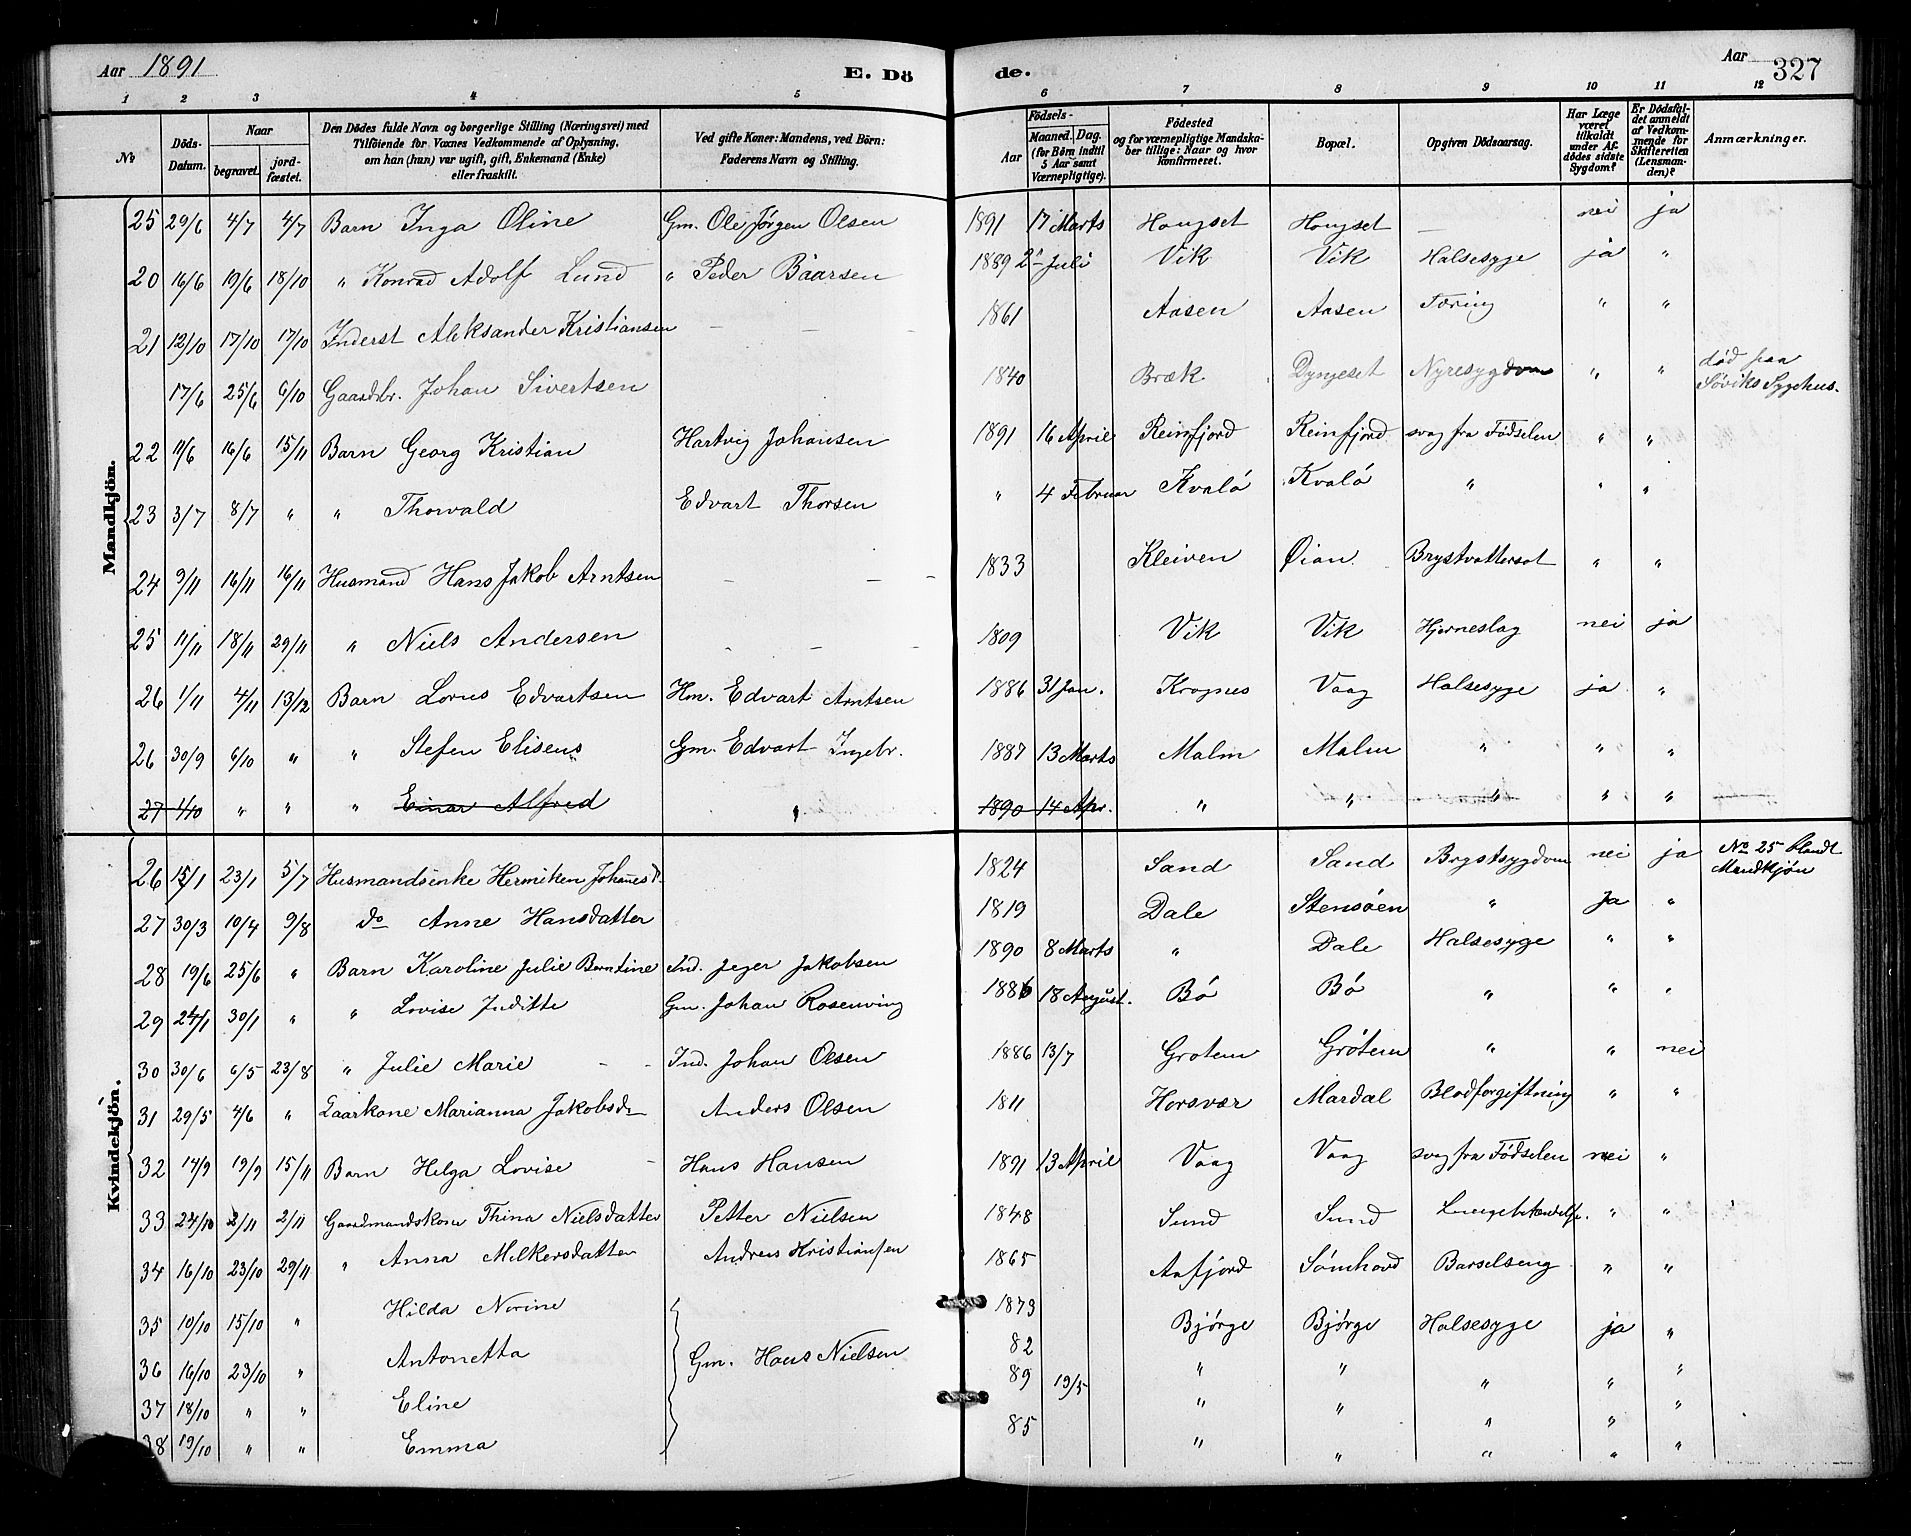 Aar 1891
E. Dö de.
Aar 327
1 2 3 4 5 6 7 8 9 10 11 12
No
Döds-Datum.
Naar begravet. jord-fæstet.
Den Dödes fulde Navn og borgerlige Stilling (Næringsvei) med Tilföiende for Voxnes Vedkommende af Oplysning, om han (hun) var ugift, gift, Enkemand (Enke) eller fraskilt.
Ved gifte Koner: Mandens, ved Börn: Faderens Navn og Stilling.
Födsels-
Aar Maaned. Dag. (for Börn indtil 5 Aar samt Værnepligtige).
Födested og for værnepligtige Mandskaber tillige: Naar og hvor konfirmeret.
Bopæl.
Opgiven Dödsaarsag.
Har Læge været tilkaldt under Afdödes sidste Sygdom?
Er Dödsfaldet anmeldt af Vedkommende for Skifteretten (Lensmanden)?
Anmærkninger.
Mandkjön.
25 29/6 4/7 4/7 Barn Inga Oline Gm. Ole Jørgen Olsen 1891 17 Marts Hongset Hongset — nei ja
20 16/6 19/6 18/10 " Konrad Adolf Lund " Peder Baarsen 1889 2 Juli Vik Vik Halsesyge ja "
21 12/10 17/10 17/10 Inderst Aleksander Kristiansen — — — 1861 Aasen Aasen Tæring " "
17/6 25/6 6/10 Gaardbr. Johan Sivertsen 1840 Bræk Dynjeset Nyresygdom " " død paa Søviks Sygehus.
22 11/6 16/6 15/11 Barn Georg Kristian Hartvig Johansen 1891 16 April Reinfjord Reinfjord svag fra Fødselen " "
23 3/7 8/7 " " Thorvald Edvart Thorsen " 4 Februar Kvalø Kvalø " " "
24 9/11 16/11 16/11 Husmand Hans Jakob Arntsen — — — 1833 Kleiven Øian Brystvattersot " "
25 11/11 18/11 29/11 " Niels Andersen — — — 1809 Vik Vik Hjerneslag nei ja
26 1/11 4/11 13/12 Barn Lorns Edvartsen Hm. Edvart Arntsen 1886 31 Jan. Krognes Vaag Halsesyge ja "
26 30/9 6/10 " " Stefen Elisens Gm. Edvart Ingebr. 1887 13 Marts Malm Malm " " "
27 1/10 " " " Einar Alfred " 1890 14 Apr. " " " " "
Kvindekjön.
26 15/1 23/1 5/7 Husmandsenke Hermiken Johannesd. 1824 Sand Sand Brystsygdom nei ja No 25 blandt Mandkjøn
27 30/3 10/4 9/8 do Anne Hansdatter 1819 Dale Stensøen " Ja "
28 19/6 25/6 " Barn Karoline Julie Berntine Ind. Jeger Jakobsen 1890 8 Marts " Dale Halsesyge " "
29 24/1 30/1 " " Lovise Juditte Gm. Johan Rosenving 1886 18 August. Bø Bø " " "
30 30/6 6/5 23/8 " Julie Marie — — Ind. Johan Olsen 1886 13/7 Grotem Grøtem " " nei
31 29/5 4/6 " Laarkone Marianna Jakobsd. Anders Olsen 1811 Horsvær Mardal Blodforgiftning " "
32 14/9 19/9 15/11 Barn Helga Lovise — Hans Hansen 1891 13 April Vaag Vaag svag fra Fødselen nei "
33 24/10 2/11 2/11 Gaardmandskone Thina Nielsdatter Petter Nielsen 1848 Sund Sund Lungebetændelse. " "
34 16/10 23/10 29/11 " Anna Melkersdatter Andreas Kristiansen 1865 Aafjord Sømhovd Barselseng " "
35 10/10 15/10 " Hilda Norine 1873 Bjørge Bjørge Halsesyge ja "
36 16/10 23/10 " Antonetta Gm. Hans Nielsen 82 " " " " "
37 18/10 " " Eline 89 19/5 " " " " "
38 19/10 " " Emma 85 " " " " "